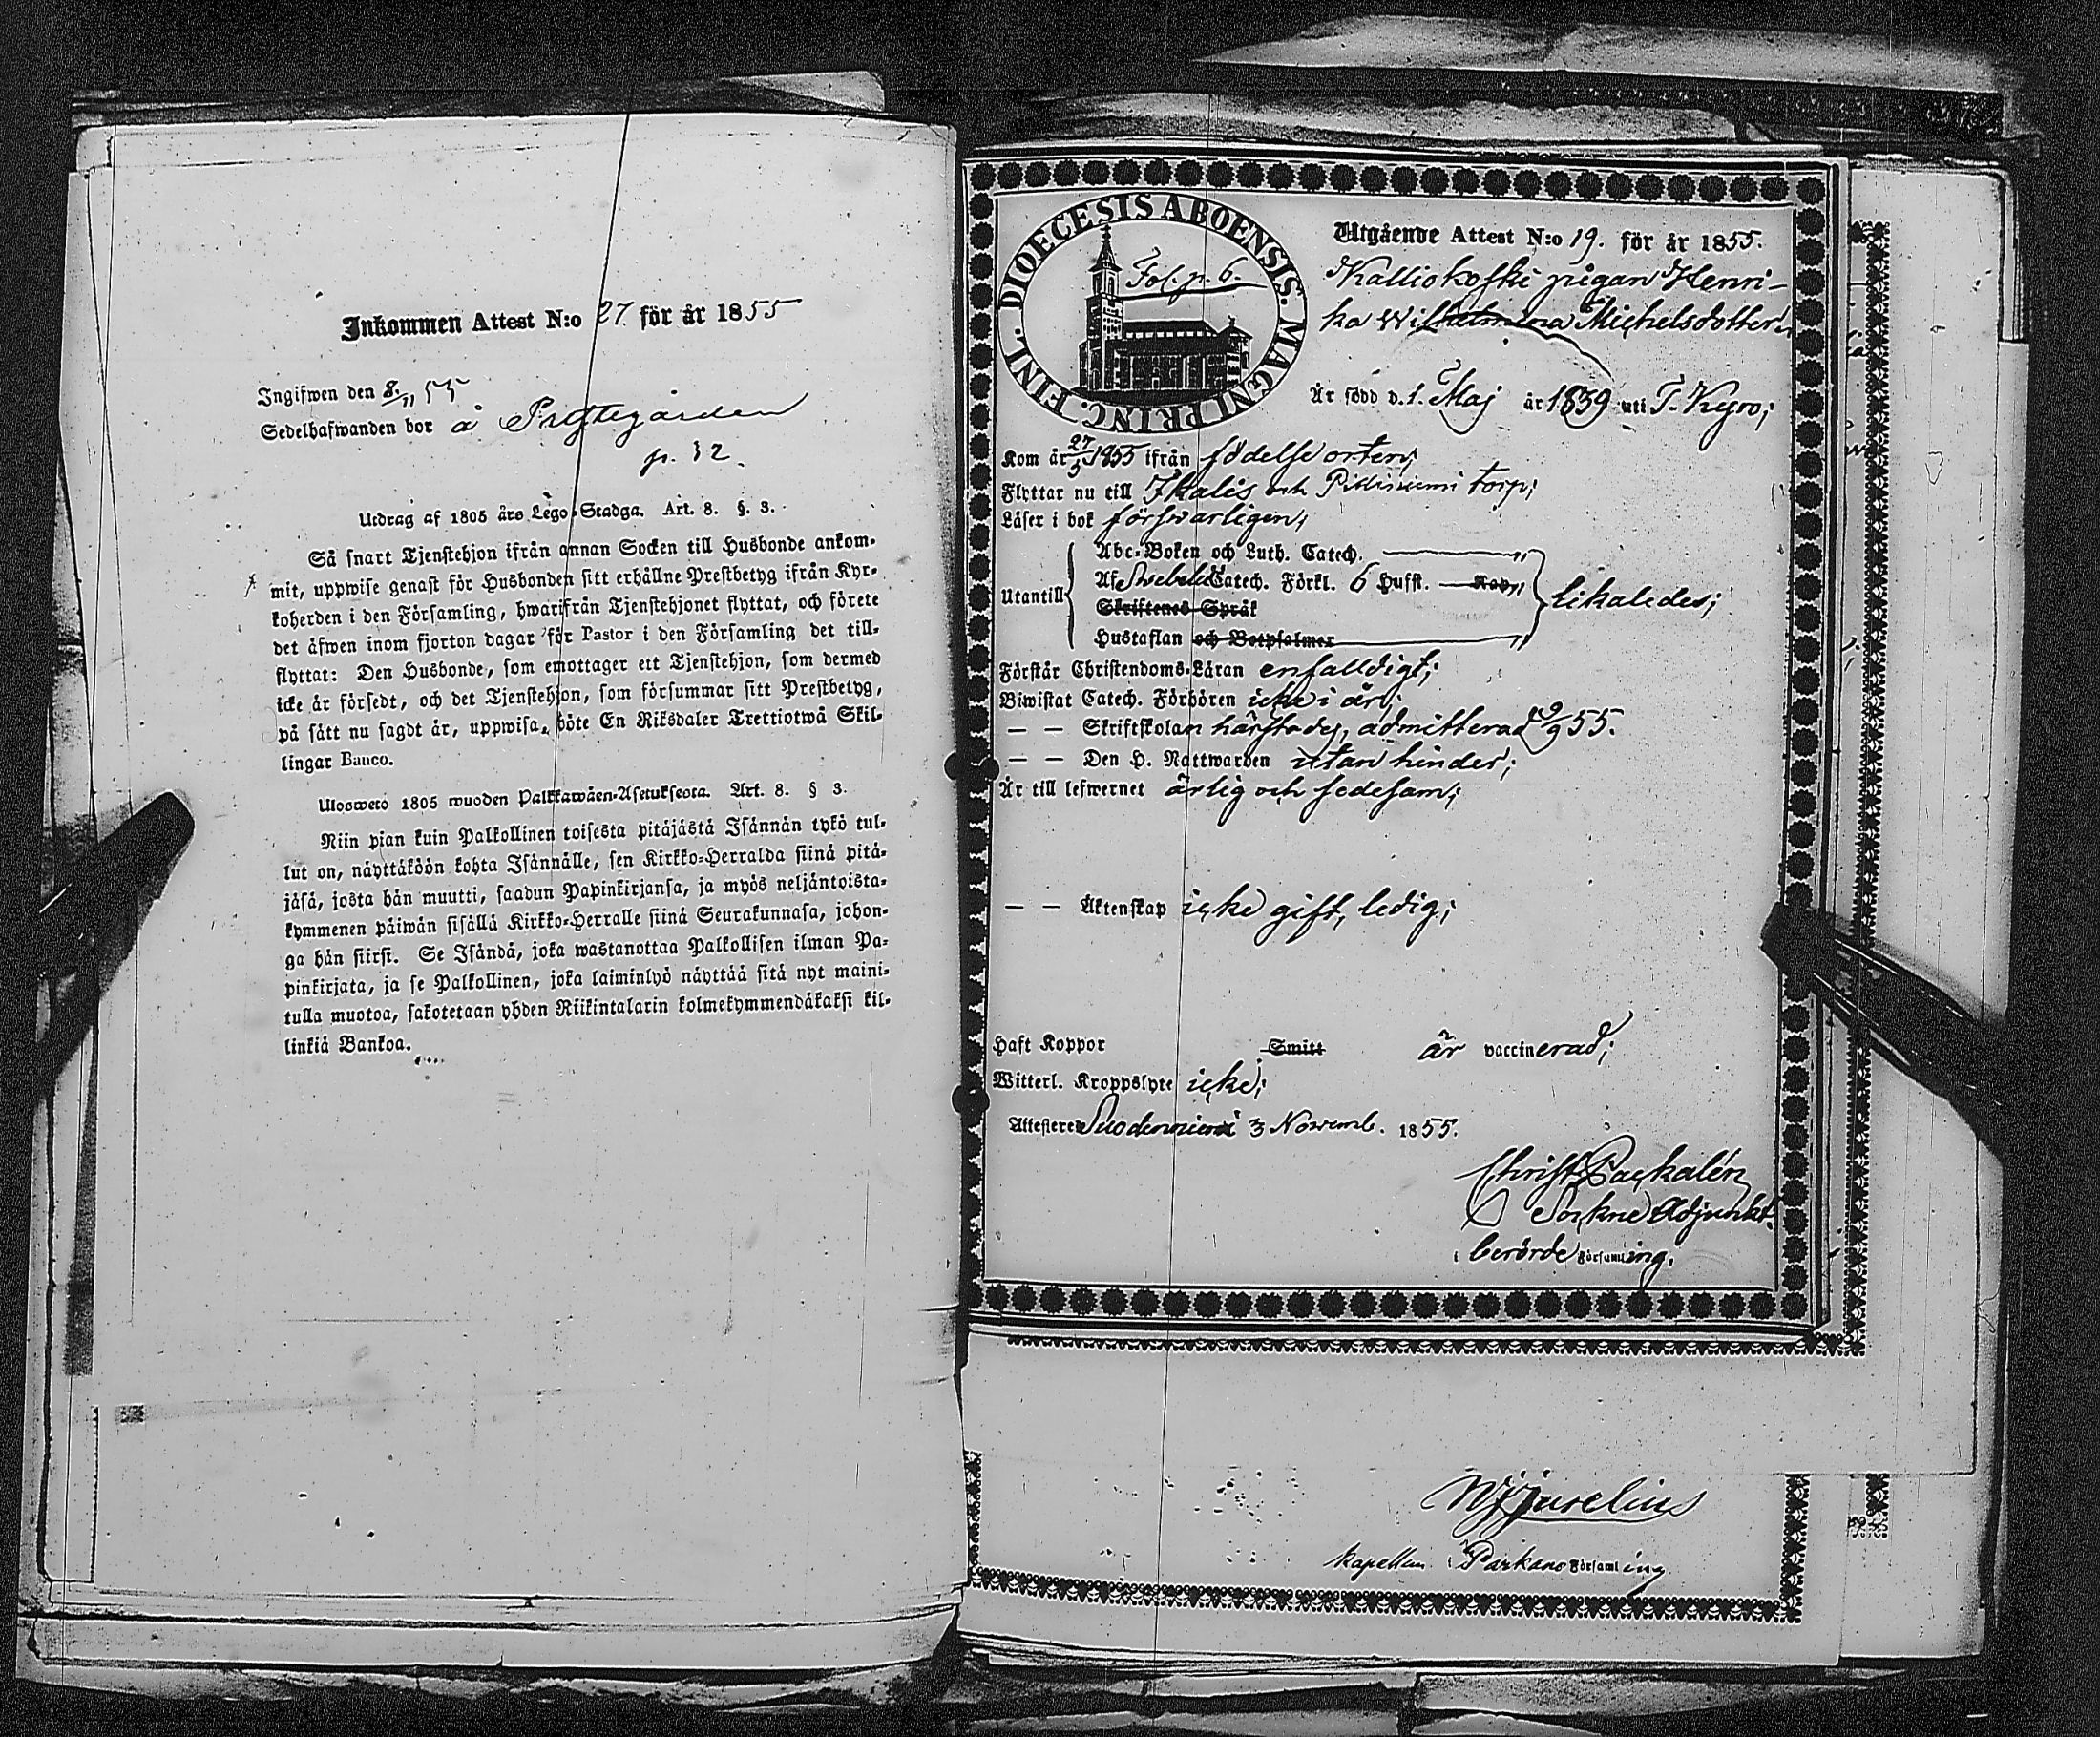 Inkommen Attest N:o 27. för år 1855
Ingifwen den 8/11 55
Sedelhafwanden bor å Prestegården
p. 32.
Utdrag af 1805 års Lego-Stadga. Art. 8. §. 3.
Så snart Tjenstehjon ifrån annan Socken till Husbonde ankom-
mit, uppwise genast för Husbonden sitt erhållne Prestbetyg ifrån Kyr-
koherden i den Församling, hwarifrån Tjenstehjonet flyttat, och förete
det åfwen inom fjorton dagar för Pastor i den Församling det till-
flyttat: Den Husbonde, som emottager ett Tjenstehjon, som dermed
icke är försedt, och det Tjenstehjon, som försummar sitt Prestbetyg,
på sått nu sagdt är, uppwisa, böte En Riksdaler Trettiotwå Skil-
lingar Banco.
Uloswetö 1805 wuoden Palkkawäen-Asetuksesta. Art. 8. § 3.
Niin pian kuin Palkollinen toisesta pitäjästä Isännän tykö tul-
lut on, näyttäköön kohta Isännälle, sen Kirkko-Herralda siinä pitä-
jäsä, josta hän muutti, saadun Papinkirjansa, ja myös neljäntoista-
kymmenen päiwän sisällä Kirkko-Herralle siinä Seurakunnasa, johon-
ga hän siirsi. Se Isändä, joka wastanottaa Palkollisen ilman Pa-
pinkirjata, ja se Palkollinen, joka laiminlyö näyttää sitä nyt maini-
tulla muotoa, sakotetaan yhden Riikintalarin kolmekymmendäkaksi kil-
linkiä Bankoa.
DIOECESIS ABOENSIS. MAGNI PRINC. FINL.
Fol. p. 6.
Utgående Attest N:o 19. för år 1855.
Kalliokoski pigan Henri-
ka Wilhelmina Michelsdotter
Är född d. 1. Maj år 1839 uti T. Kyro;
Kom år 27/3 1855 ifrån födelse orten;
Flyttar nu till Ikalis och torp;
Läser i bok förswarligen;
Utantill
Abc-Boken och Luth. Catech.
Af Swebelii Catech. Förkl. 6 Hufst. Kap.
Skriftenes Språk
Hustaflan och Botpsalmer
likaledes;
Förstår Christendoms-Läran enfaldigt;
Biwistat Catech. Förhören icke i år;
— — Skriftskolan härstädes, admitterad 9/9 55.
— — Den H. Nattwarden utan hinder;
Är till lefwernet ärlig och sedesam;
— — Äktenskap icke gift, ledig;
Haft Koppor Smitt är vaccinerad;
Witterl. Kroppslyte icke;
Attesterer Suodenniemi 3 Novemb. 1855.
Christ Packalén
Sockne Adjunkt
i berörde Församling.
Kapellan i Parkano Församling